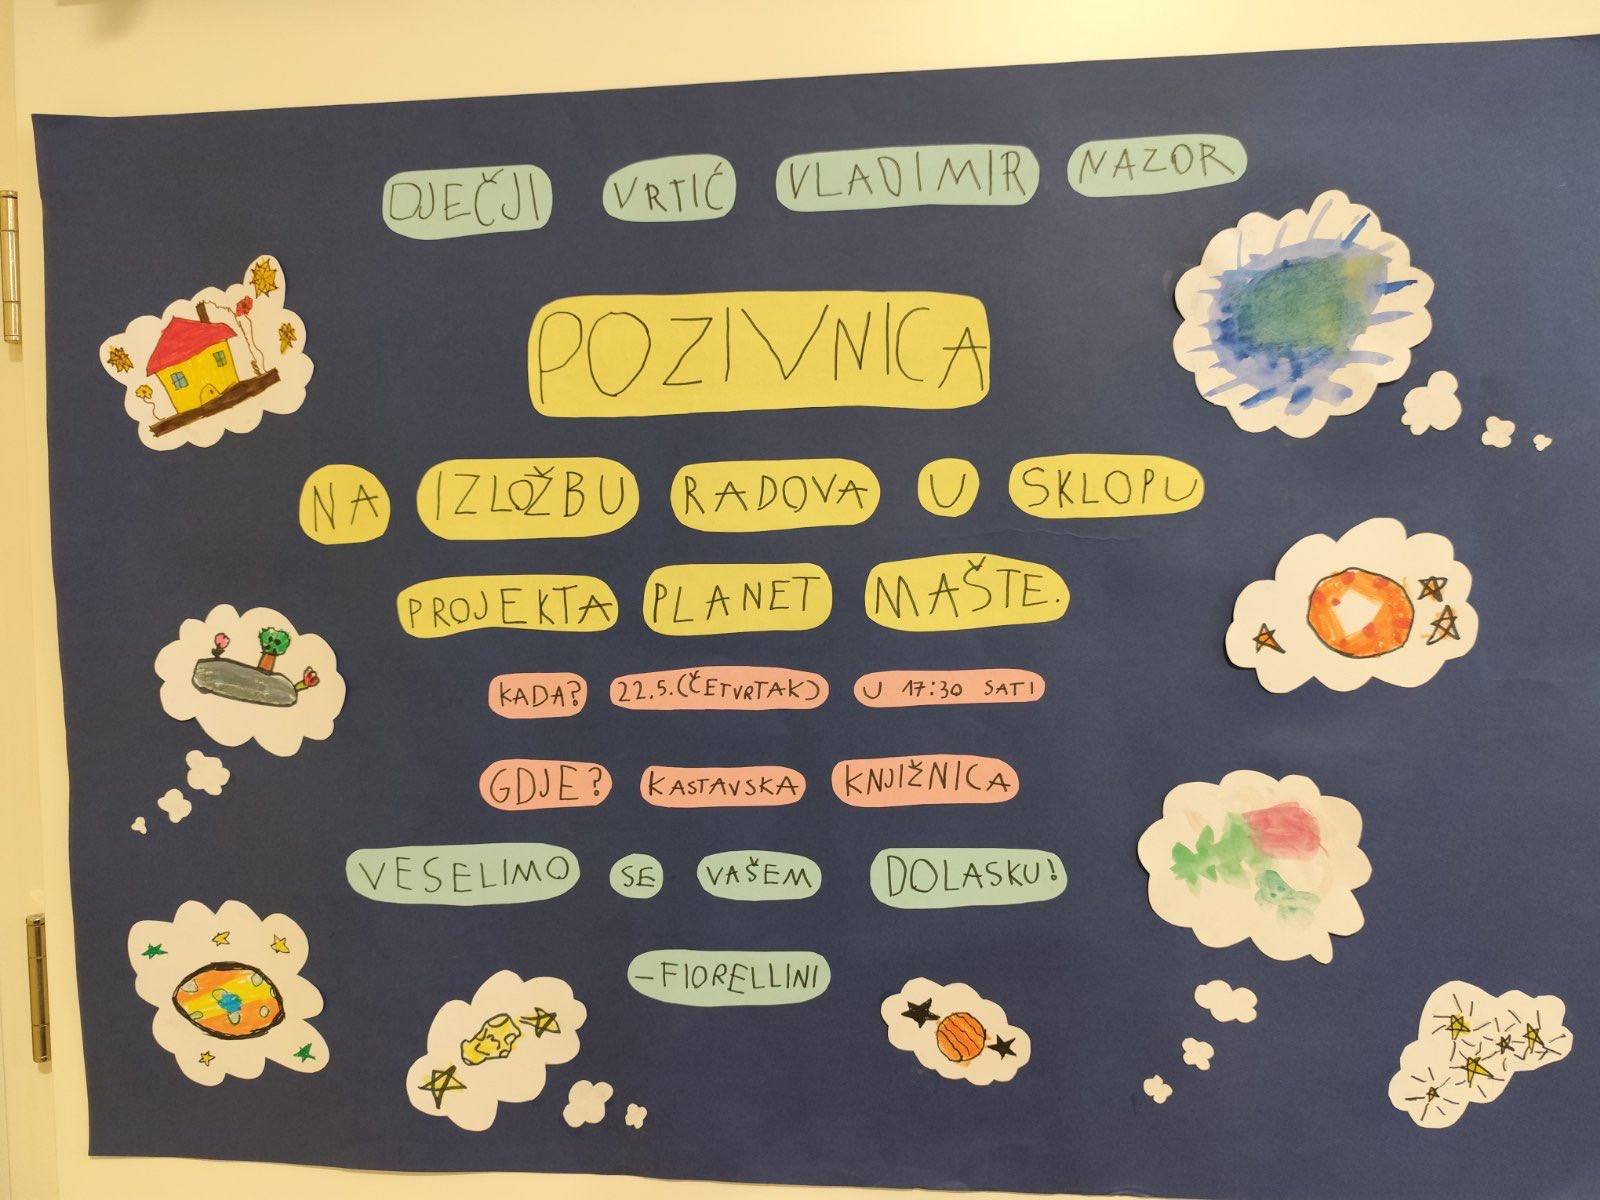 DJEČJI VRTIĆ VLADIMIR NAZOR
POZIVNICA
NA IZLOŽBU RADOVA U SKLOPU
PROJEKTA PLANET MAŠTE.
KADA? 22.5.(ČETVRTAK) U 17:30 SATI
GDJE? KASTAVSKA KNJIŽNICA
VESELIMO SE VAŠEM DOLASKU!
-FIORELLINI